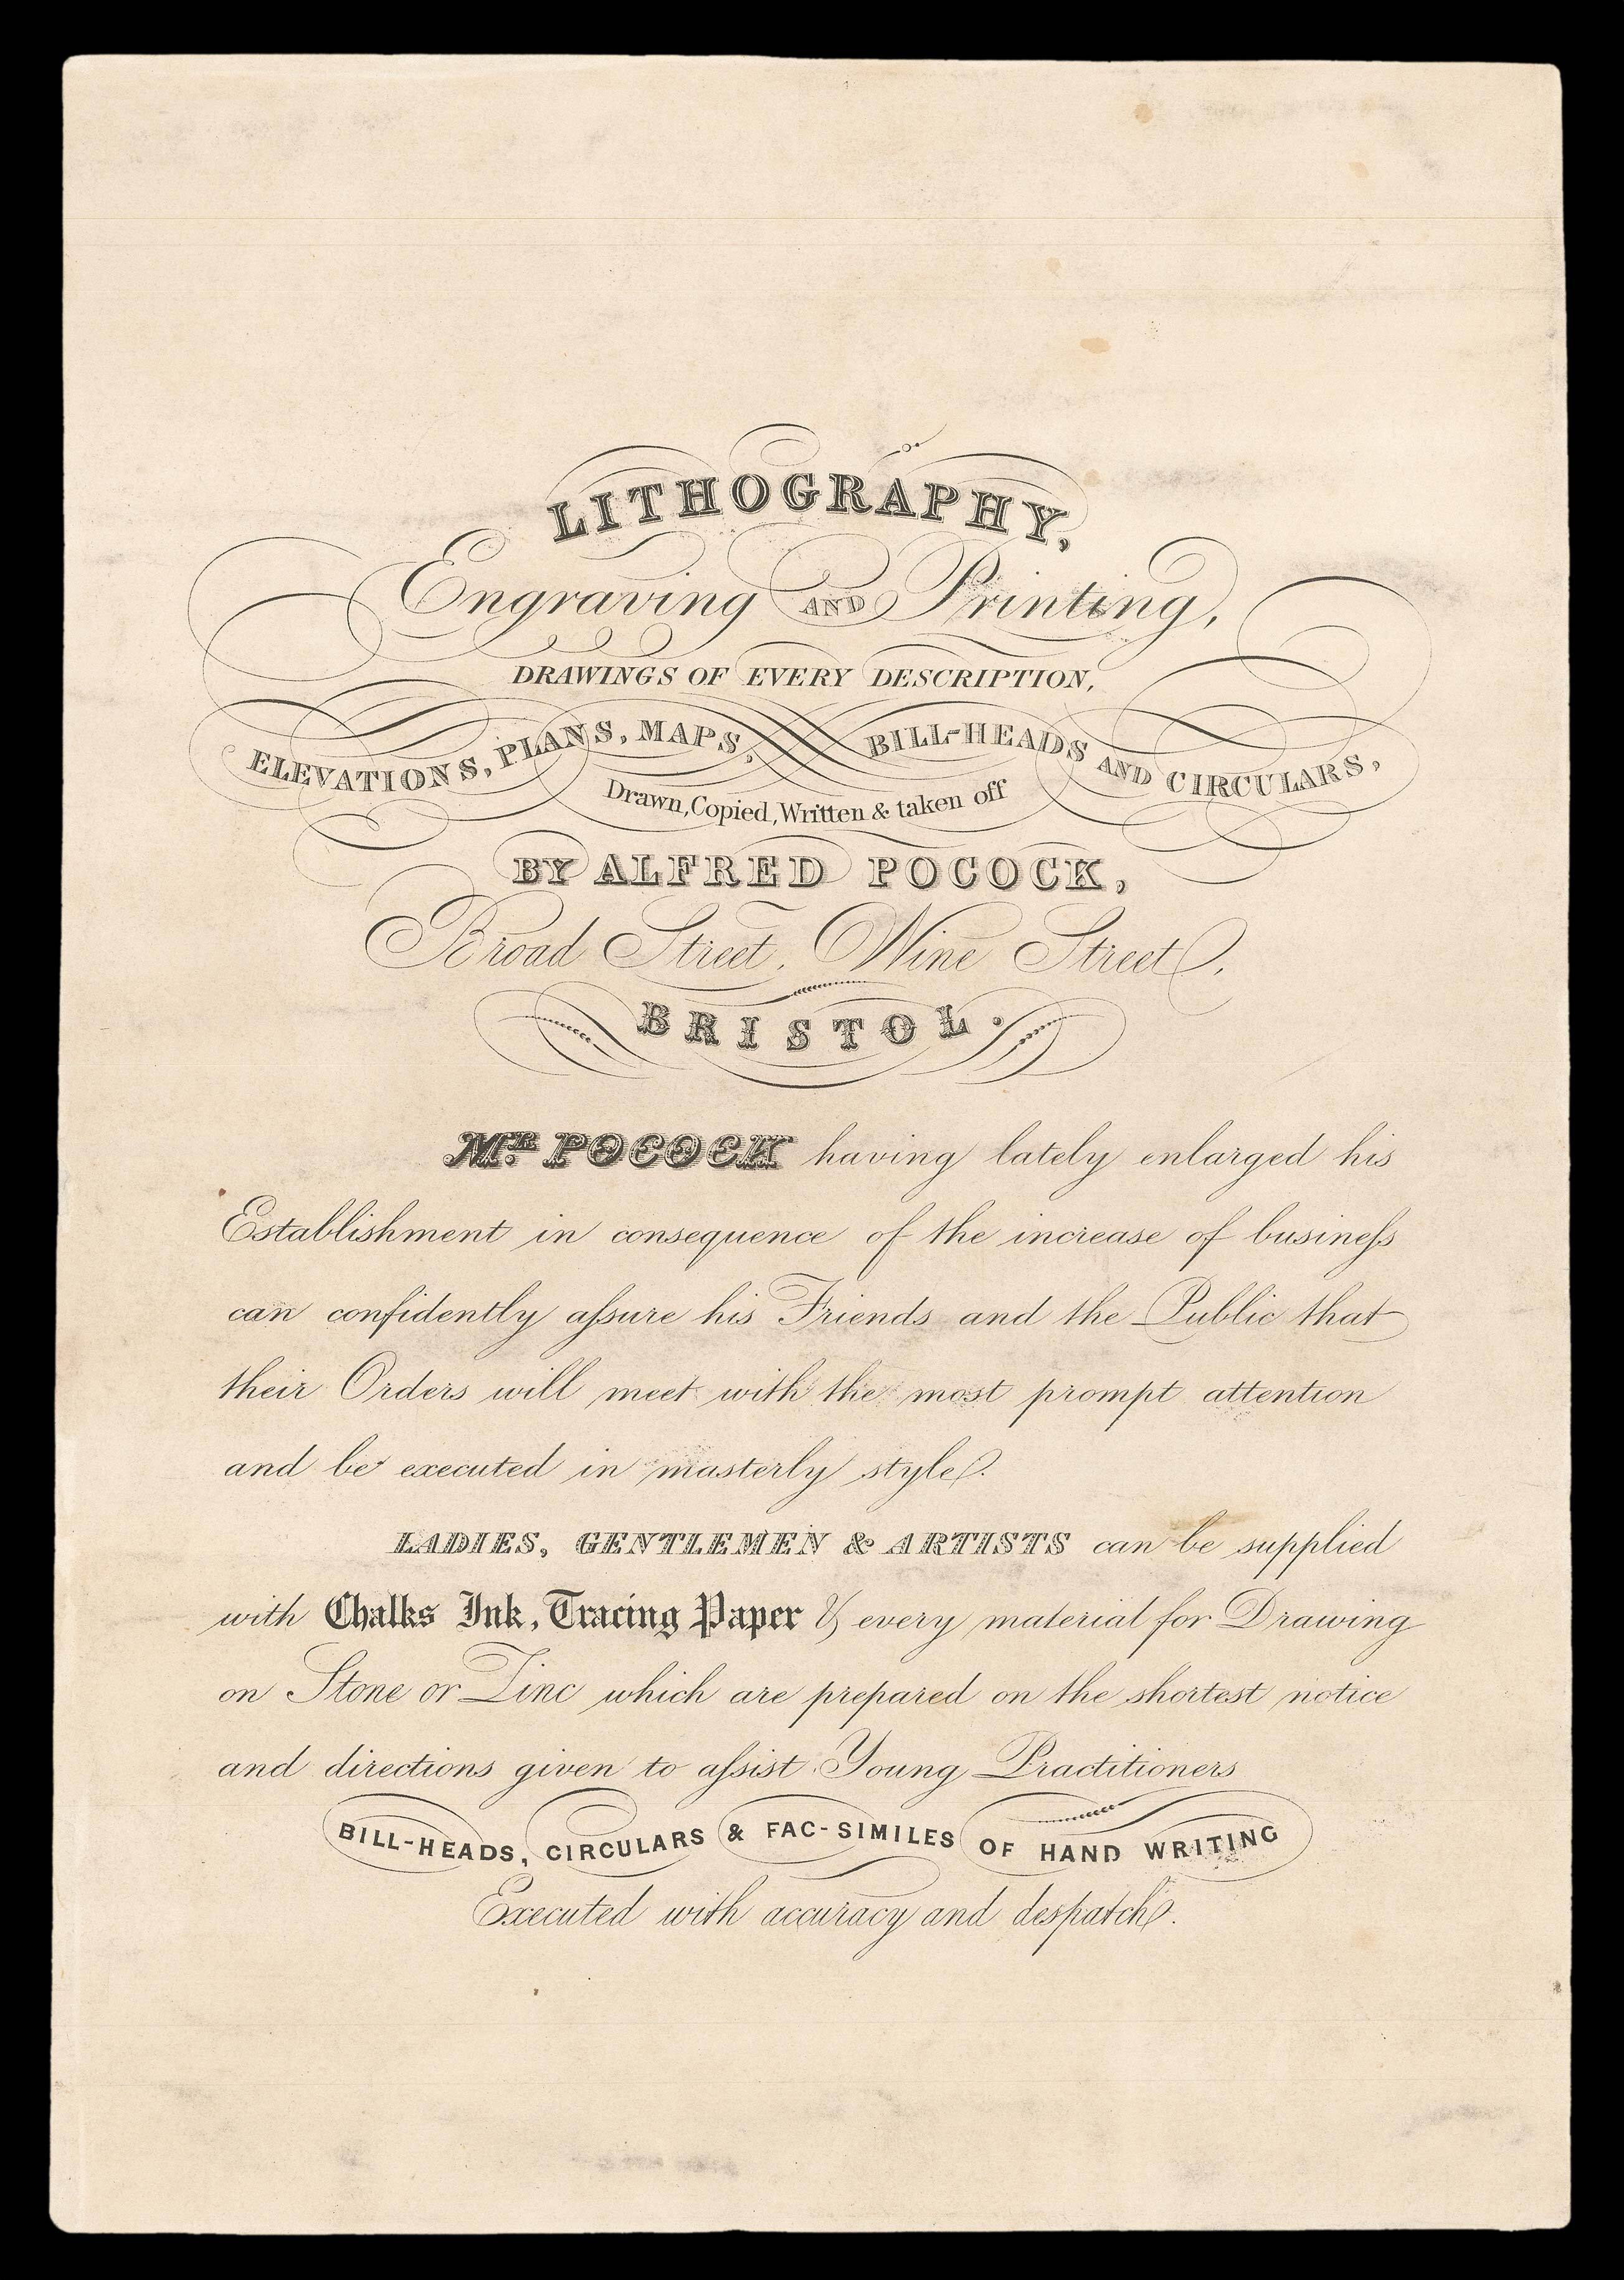 LITHOGRAPHY,
Engraving AND Printing,
DRAWINGS OF EVERY DESCRIPTION,
ELEVATIONS, PLANS, MAPS, BILL-HEADS AND CIRCULARS,
Drawn, Copied, Written & taken off
BY ALFRED POCOCK,
Broad Street, Wine Street,
BRISTOL.
Mr. POCOCK having lately enlarged his
Establishment in consequence of the increase of busineſs
can confidently aſsure his Friends and the Public that
their Orders will meet with the most prompt attention
and be executed in masterly style.
LADIES, GENTLEMEN & ARTISTS can be supplied
with Chalks Ink, Tracing Paper & every material for Drawing
on Stone or Zinc which are prepared on the shortest notice
and directions given to aſsist Young Practitioners
BILL-HEADS, CIRCULARS & FAC-SIMILES OF HAND WRITING
Executed with accuracy and despatch.